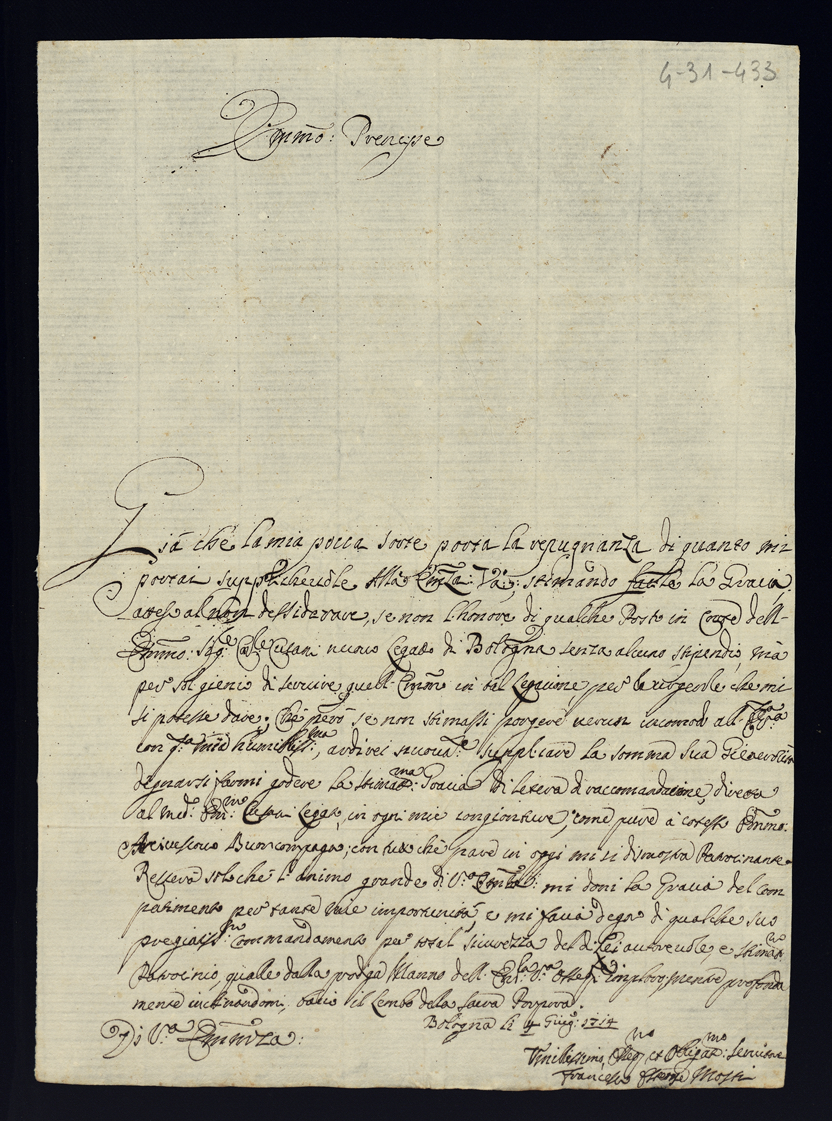 4-31-433
Emmo: Prencipe
Già che la mia pocca sorte porta la repugnanza di quanto mi
portai supplichevole alla Emza: Va: stimando facile la Gracia
attes al non dessiderare, se non l'honore di qualche Posto in Corte dell-
Emmo: Sigre Cale Cusani nuovo Legato di Bologna senza alcuno stipendio, mà
per sol gienio di servire quell-Emmo in tal Legacione per le che mi
si potesse dare; Che però se non stimassi porgere verun incomodo all-
con humilissma, ardirei supplicare la somma sua
degnarsi farmi godere la stimatma Gracia di letera di raccomandacione, direta
al med: Emmo Cusani Legato, in ogni mie congionture, come pure à cotesto Emmo:
Arcivescovo Buoncompagni, con tutto che pare in ogni mi si dimostra Patrocinante
Resterà sol che l'animo grande di Va Emza: mi doni la Gracia del Com
patimento per tante mie importunità e mi facia degno di qualche suo
pregiatissmo Commandamento per total sicurezza del di Lei autorevole, e stimatmo
Patrocinio, qualle dalla Manno dell- Va profonda
mente inchinandomi, bacio il Lembo dela Sacra Porpora.
Bologna li 4 Giug: 1714
Di Va Emmza:
Umilissimo, et Obligatmo: Servitore
Francesco Mosti